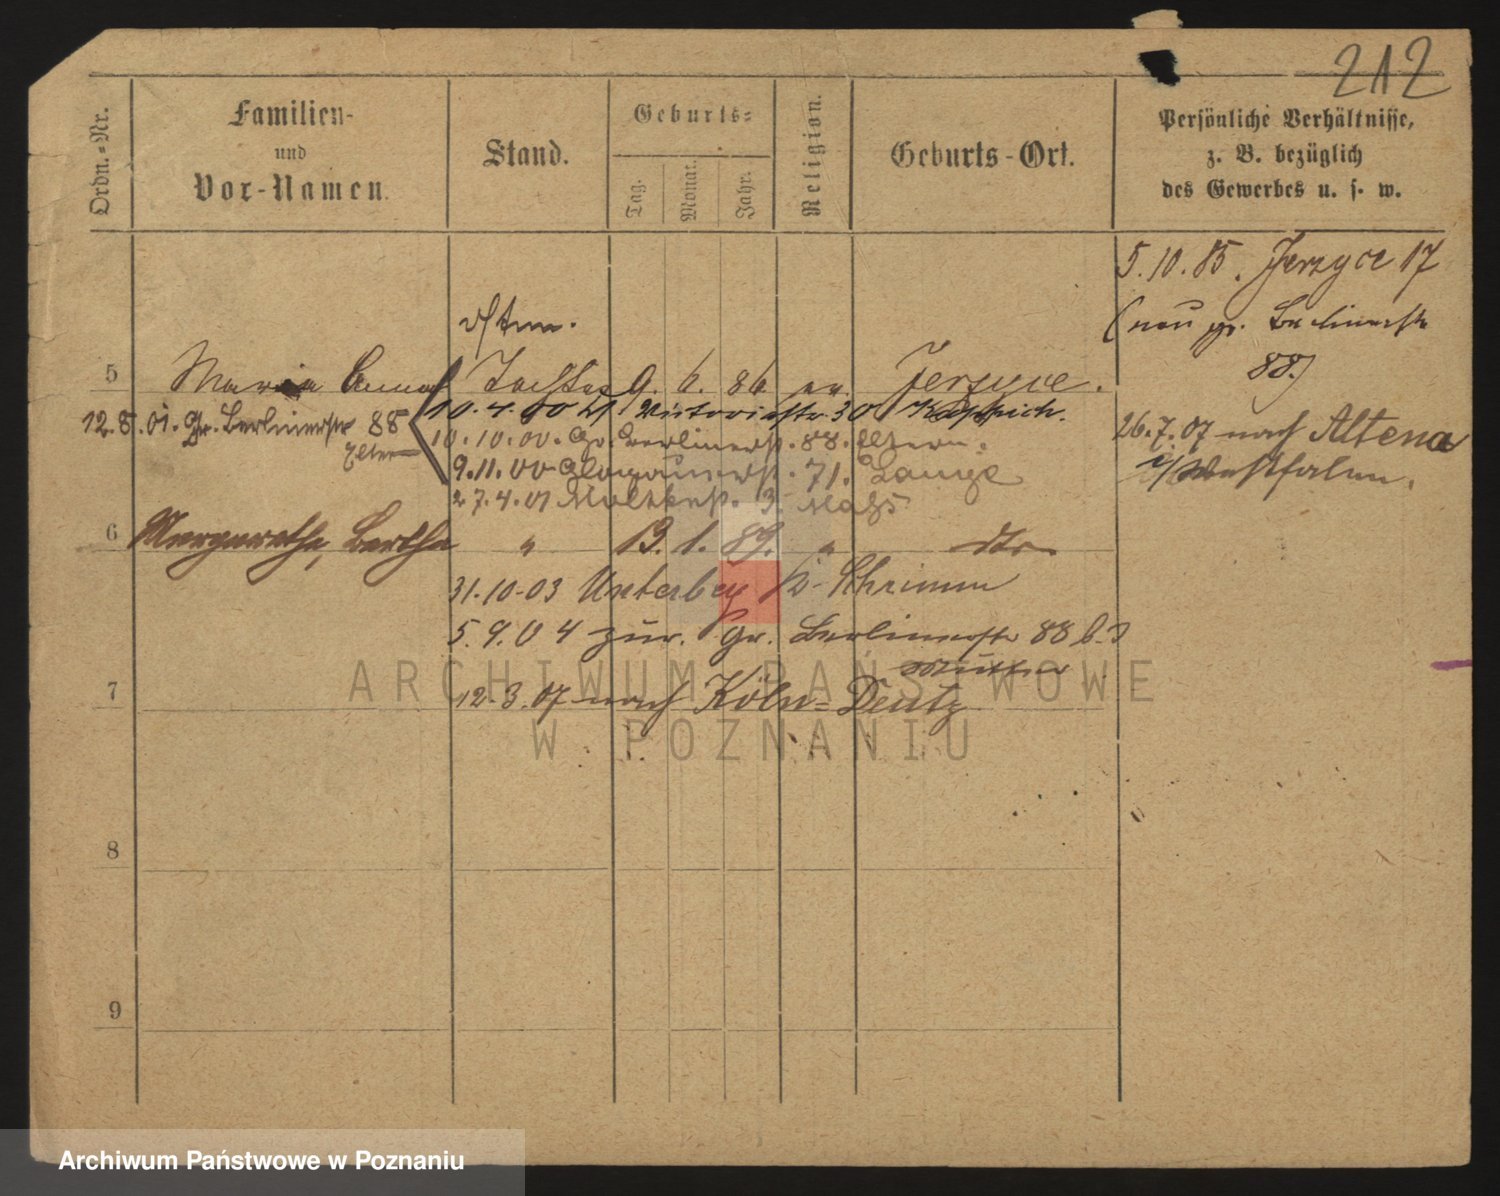 212
Ordn.-Nr.
Familien-
und
Vor-Namen.
Stand.
Geburts-
Tag.
Monat.
Jahr.
Religion.
Geburts-Ort.
Persönliche Verhältnisse,
z. B. bezüglich
des Gewerbes u. s. w.
5.10.85. Jerzyce 17
(neu gr. Berlinerstr
88.)
5 Maria Anna Tochter 9. 6. 86 ev Jerzyce.
10.4.00 Victoriastr. 30
12.8.01. Gr. Berlinerstr 88
Eltern
10.10.00. Gr. Berlinerst. 88. Eltern.
9.11.00 Glogauerst. 71. Lange
27.4.01 Moltkest. 3.
26.7.07 nach Altena
i/Westfalen.
6 Margarethe, Bertha " 13. 1. 89. " dto
31.10.03 Schrimm
5.9.04 zur. gr. Berlinerstr 88 b.
Mutter
7
12.3.07 nach Köln-Deutz
8
9
ARCHIWUM PAŃSTWOWE
W POZNANIU
Archiwum Państwowe w Poznaniu